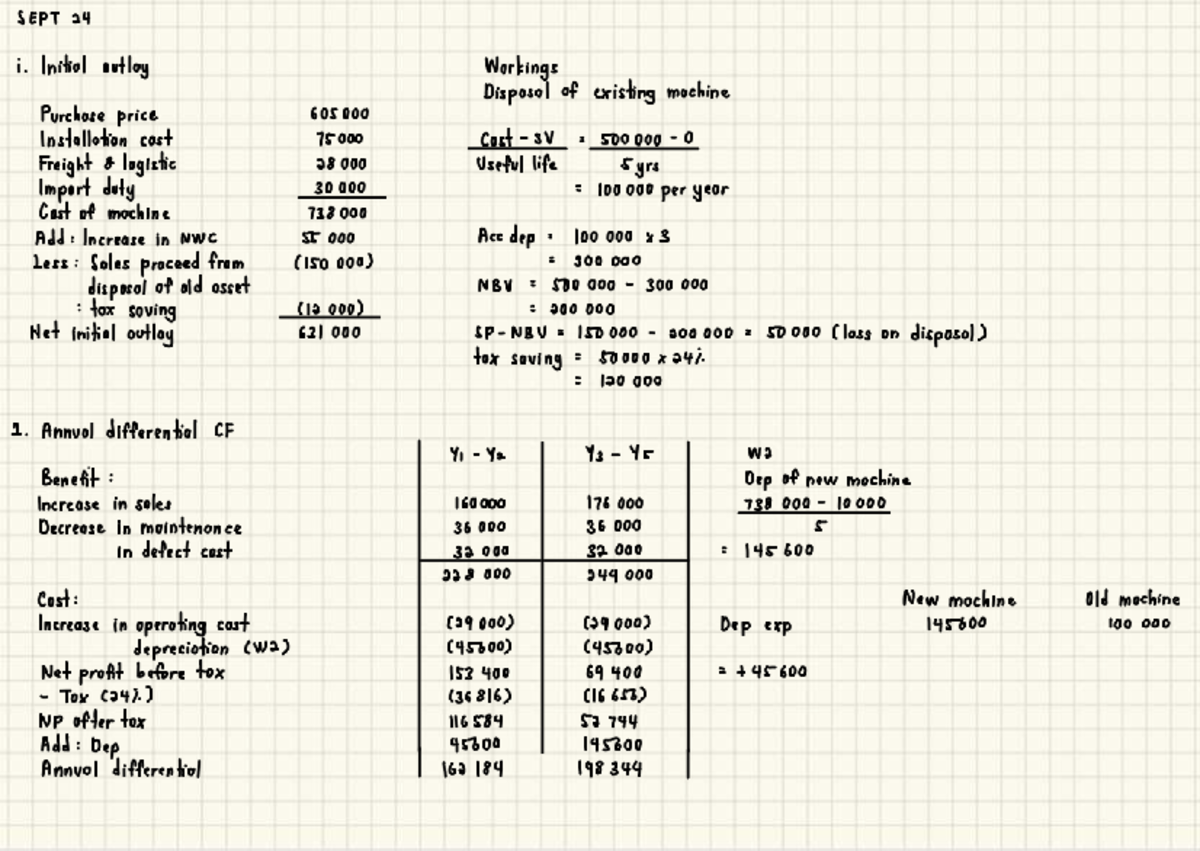 SEPT 24
i. Initial outlay
Purchase price 605 000
Installation cost 75 000
Freight & logistic 28 000
Import duty 30 000
Cost of machine 738 000
Add: Increase in NWC 55 000
Less: Sales proceed from (150 000)
disposal of old asset
: tax saving (12 000)
Net initial outlay 631 000
Workings
Disposal of existing machine
Cost - SV = 500 000 - 0
Useful life 5 yrs
= 100 000 per year
Acc dep = 100 000 x 3
= 300 000
NBV = 500 000 - 300 000
= 200 000
SP-NBV = 150 000 - 200 000 = 50 000 (loss on disposal)
tax saving = 50 000 x 24%
= 120 000
1. Annual differential CF
Y1 - Y2 Y3 - Y5
Benefit:
Increase in sales 160 000 176 000
Decrease in maintenance 36 000 36 000
in defect cost 32 000 32 000
228 000 244 000
Cost:
Increase in operating cost (29 000) (29 000)
depreciation (W2) (45600) (45600)
Net profit before tax 153 400 69 400
- Tax (24%) (36 816) (16 656)
NP after tax 116 584 52 744
Add: Dep 45600 145600
Annual differential 162 184 198 344
W2
Dep of new machine
738 000 - 10 000
5
= 145 600
New machine Old machine
Dep exp 145600 100 000
= +45 600